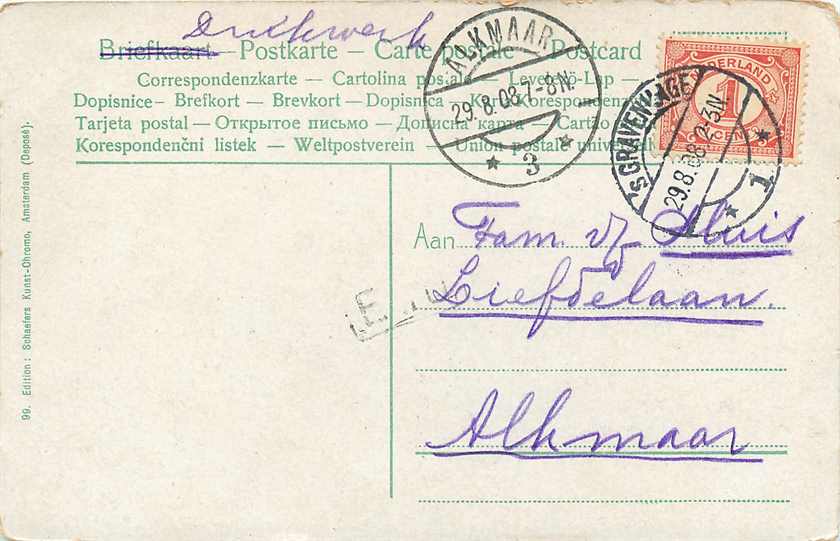 Drukwerk
Briefkaart - Postkarte - Carte postale - Postcard
Correspondenzkarte - Cartolina postale - Levelező-Lap -
Dopisnice - Brefkort - Brevkort - Dopisnica - Korespondenz
Tarjeta postal - Открытое письмо - Дописна карта - Cartão
Korespondenční listek - Weltpostverein - Union postale universelle
ALKMAAR
29.8.08.7-8N.
3
NEDERLAND
1
CENT
'sGRAVENHAGE
29.8.08 2-3N
1
Aan Fam. v/d Sluis
Liefdelaan.
Alkmaar
99. Edition: Schaefers Kunst-Chromo, Amsterdam (Deposé).